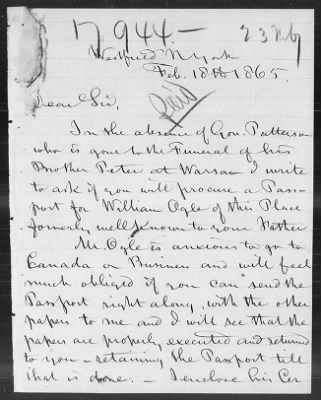 17944- 23 Feby
Westfield N York
Feb. 18th 1865.
Paid
Dear Sir,
In the absence of Gov. Patterson
who is gone to the Funeral of his
Brother Peter at Warsaw I write
to ask if you will procure a Pass-
port for William Ogle of this Place
formerly well known to your Father
Mr. Ogle is anxious to go to
Canada on Business and will feel
much obliged if you can send the
Passport right along, with the other
papers to me and I will see that the
papers are properly executed and returned
to you - retaining the Passport till
that is done. - I enclose his Cer